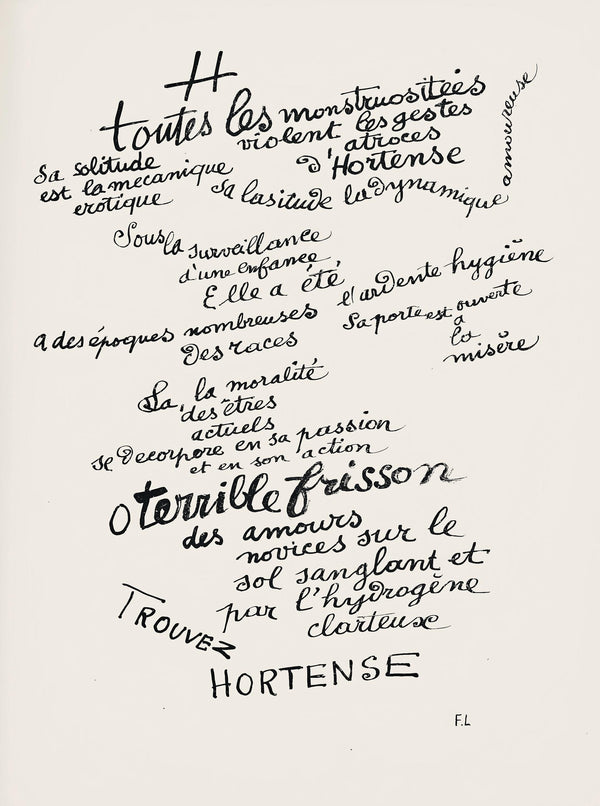 H
toutes les monstruositées
violent les gestes
atroces
d'Hortense
Sa solitude
est la mecanique
erotique
Sa lasitude la dynamique
amoureuse
Sous la surveillance
d'une enfance
Elle a été
a des époques nombreuses
l'ardente hygiène
des races
Sa porte est ouverte
a
la
misère
La, la moralité
des êtres
actuels
se decorpore en sa passion
et en son action
O terrible frisson
des amours
novices sur le
sol sanglant et
par l'hydrogène
clarteuse
TROUVEZ
HORTENSE
F.L